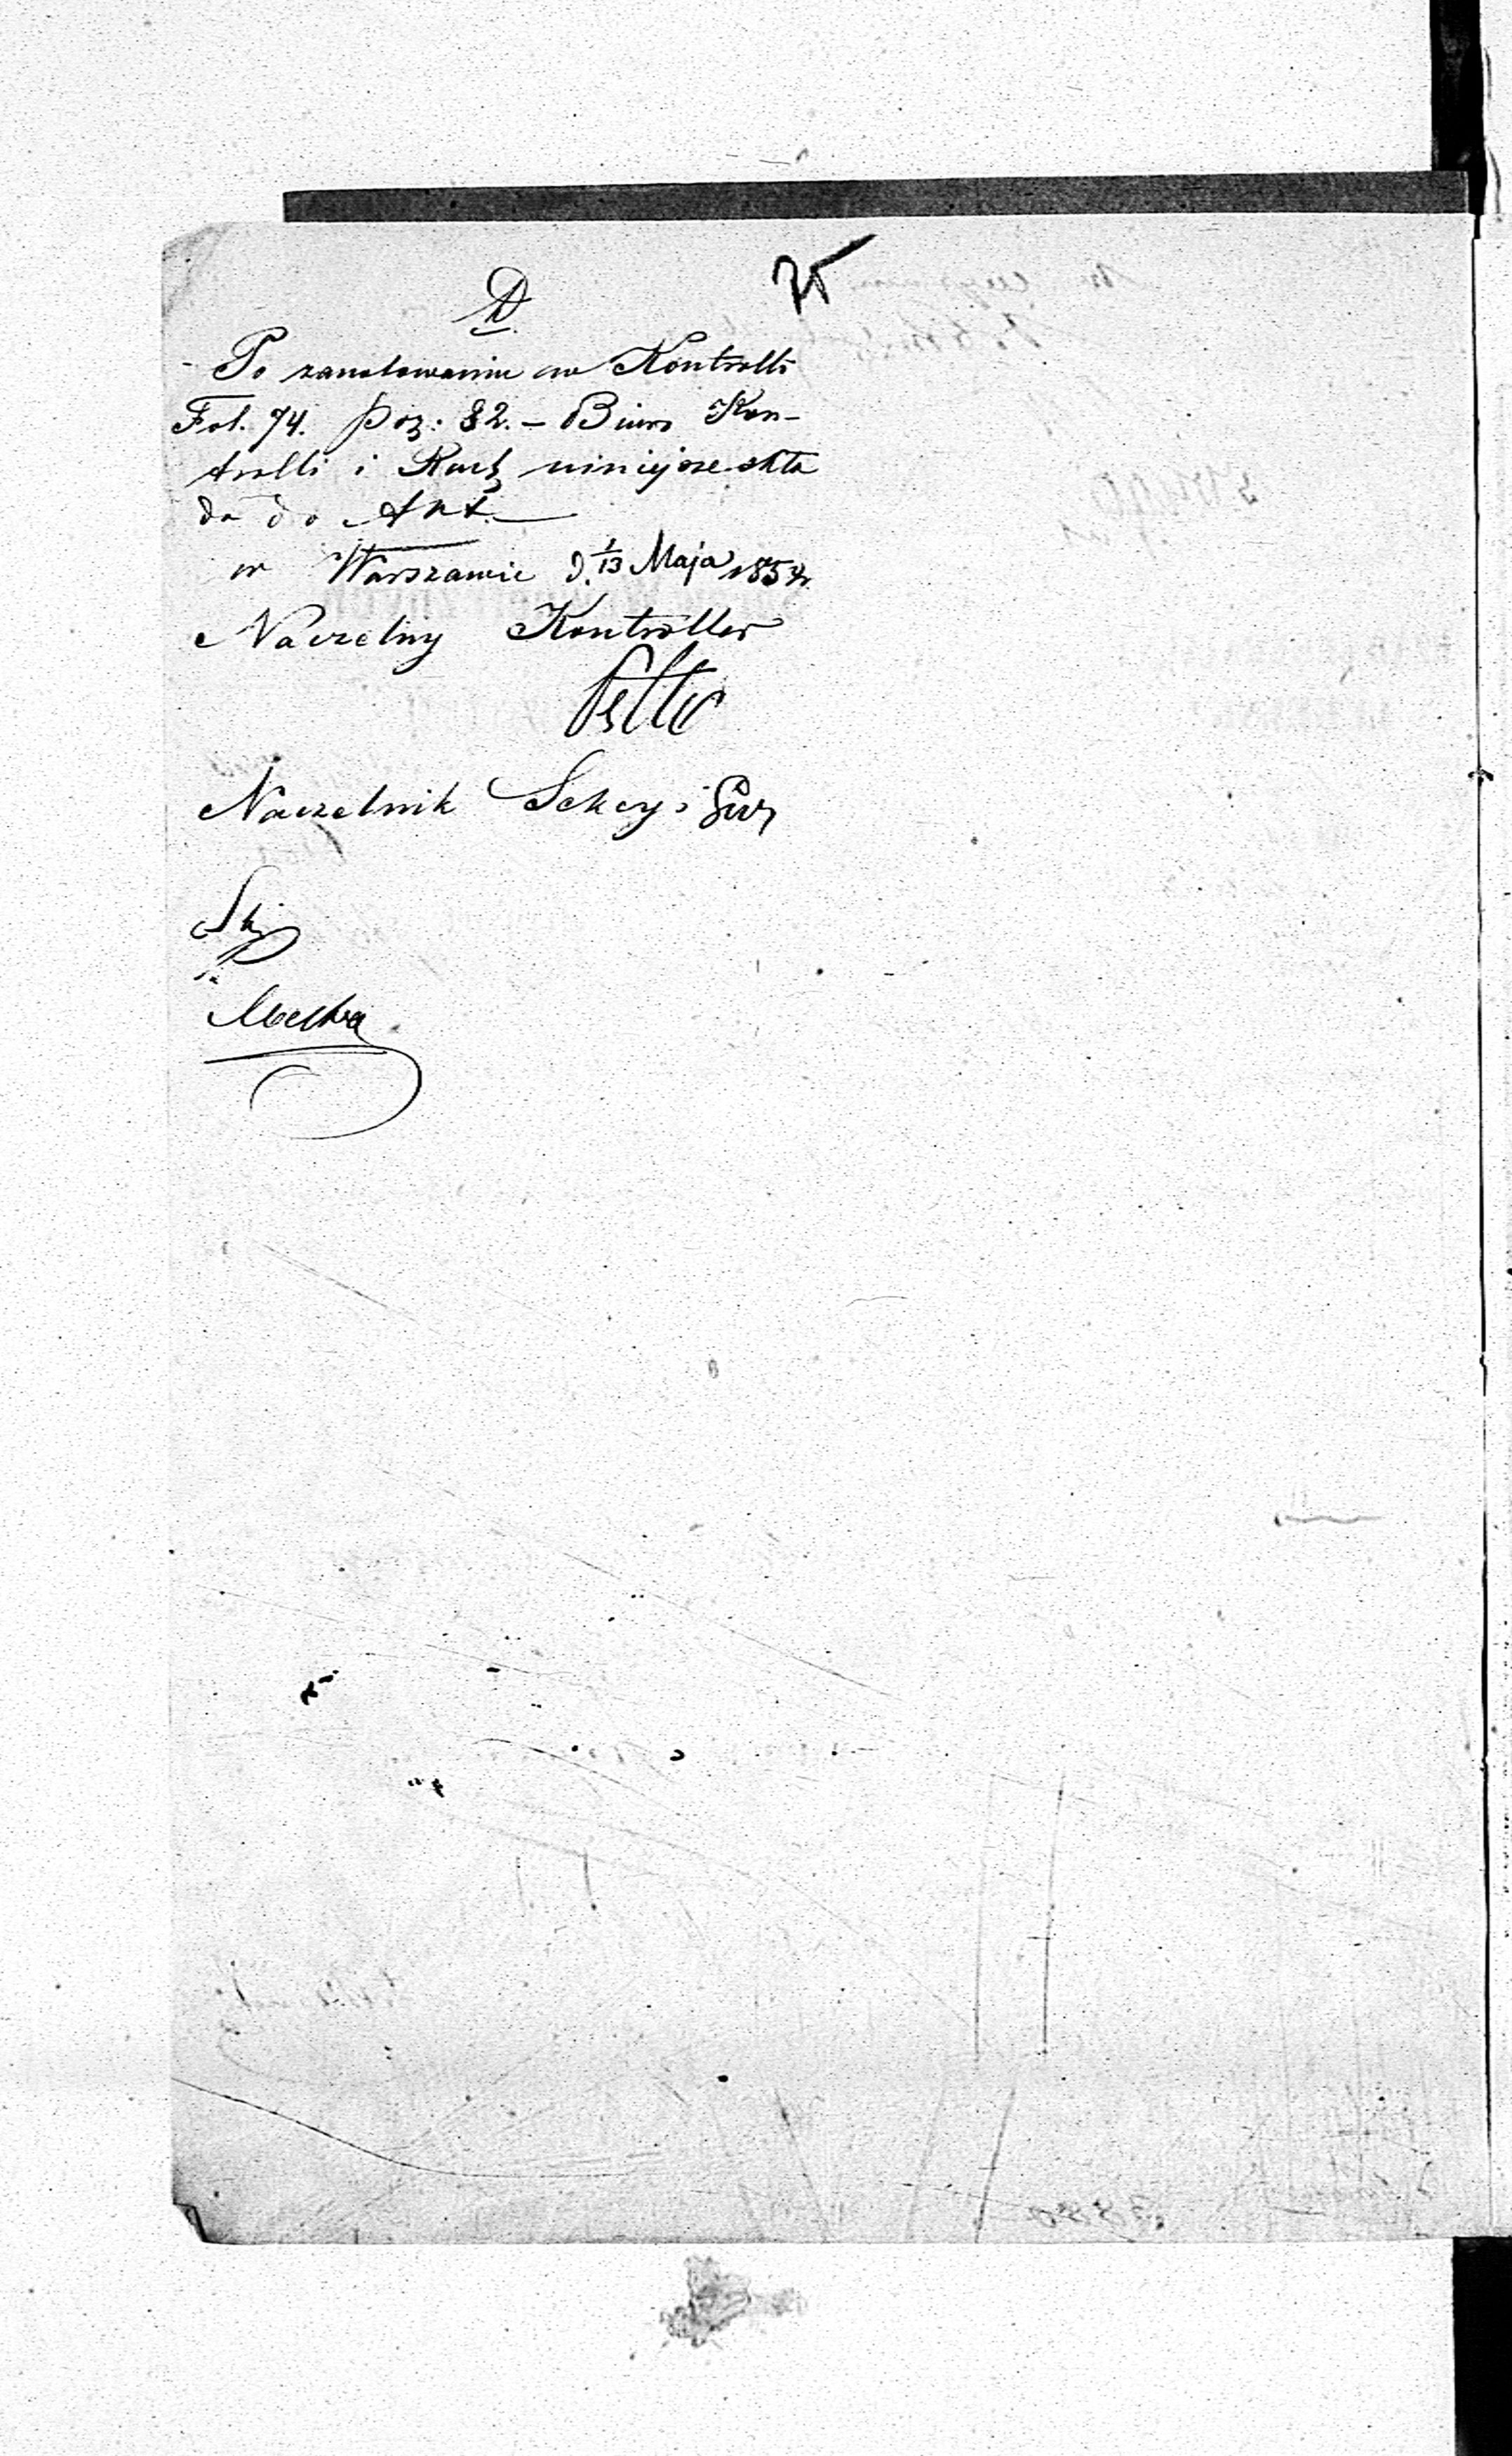 75
D
Po zanotowaniu w Kontrolli
Fol. 74. poz: 82. – Biuro Kon-
trolli i Rach niniejsze skła
da do Akt.
w Warszawie d. 1/13 Maja 185
Naczelny Kontroller
Naczelnik Sekcyi